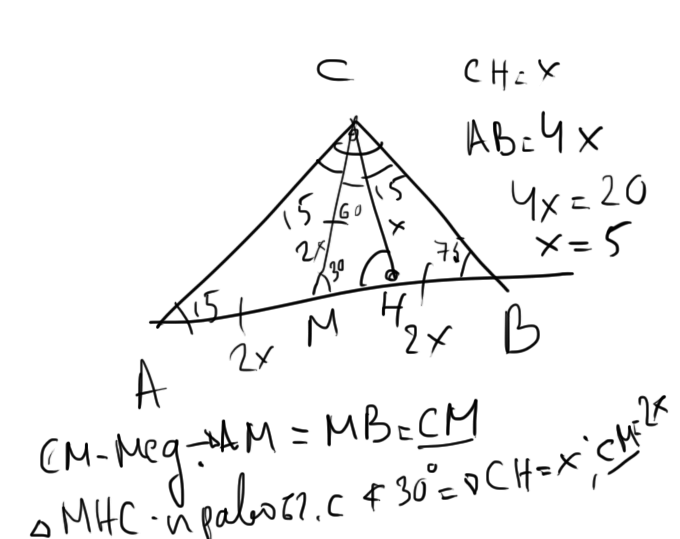 C
CH = x
AB = 4x
4x = 20
x = 5
15 60 15
2x x
30 75
15
M H B
2x 2x
A
CM - мед. → AM = MB = CM
△ MHC - правоъг. с ∢ 30° => CH = x; CM = 2x